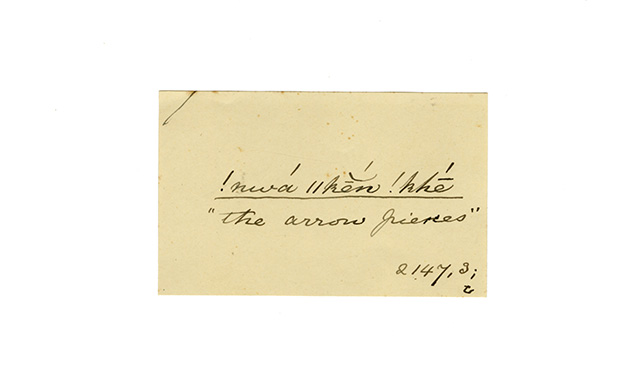 !nwá ǁkĕ́n !khé
"the arrow pierces"
2147, 3;